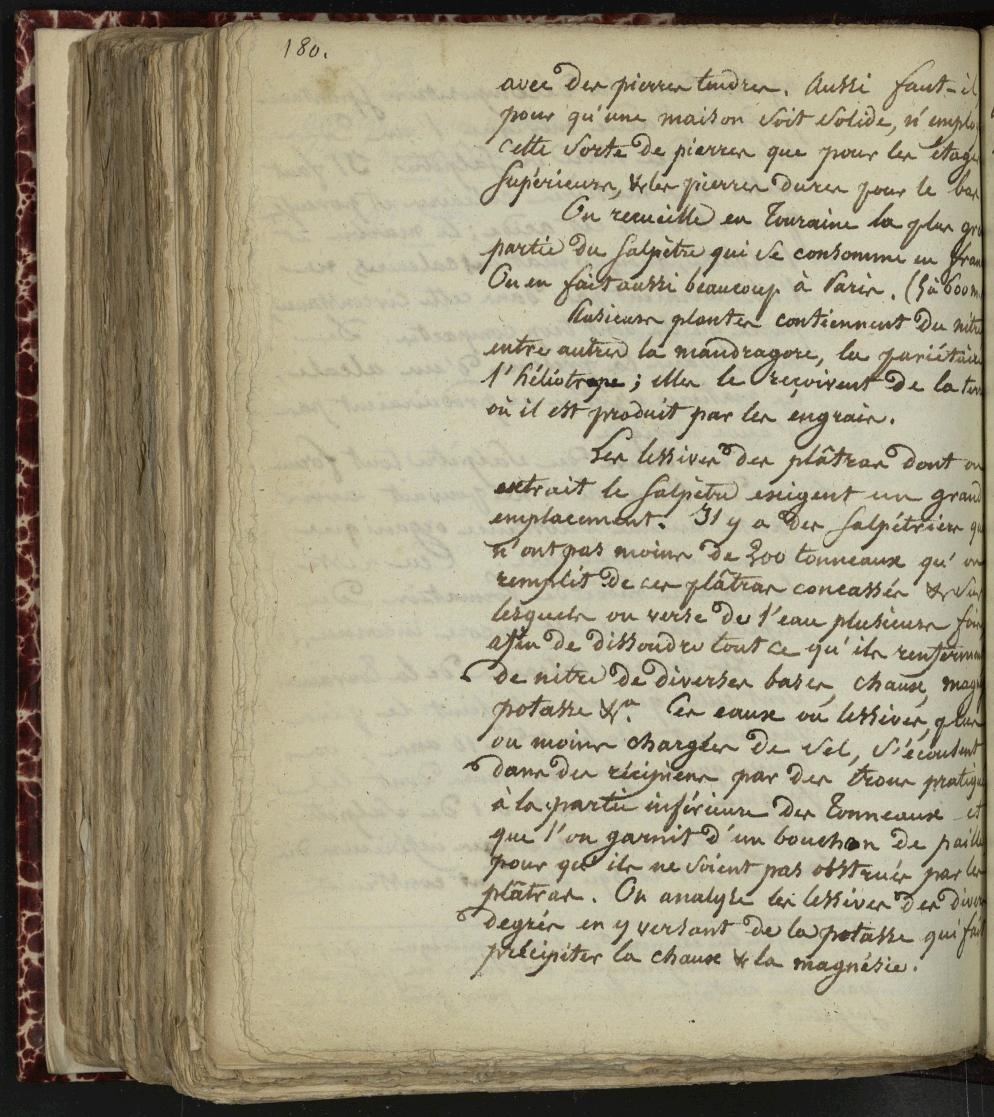 180.
avec des pierres tendres. Aussi faut-il
pour qu'une maison soit solide, n'emplo
cette sorte de pierres que pour les étage
supérieurs, & les pierres dures pour le bas
On recueille en Touraine la plus gr
partie du salpêtre qui se consomme en Fran
On en fait aussi beaucoup à Paris. (5 à 600 m
Plusieurs plantes contiennent du nitre
entre autres la mandragore, la pariétaire
l'héliotrope; elles le reçoivent de la terr
où il est produit par les engrais.
Les lessives des plâtras dont on
extrait le salpêtre exigent un grand
emplacement. Il y a des salpétriers qu
n'ont pas moins de 300 tonneaux qu'on
remplit de ces plâtras concassés & sur
lesquels on verse de l'eau plusieurs fois
afin de dissoudre tout ce qu'ils renferment
de nitre de diverses bases, chaux, magn
potasse &a. Ces eaux ou lessives, plus
ou moins chargées de sel, s'écoulent
dans des récipiens par des trous pratiqu
à la partie inférieure des tonneaux et
que l'on garnit d'un bouchon de paille
pour qu'ils ne soient pas obstrués par les
plâtras. On analyse les lessives des divers
degrés en y versant de la potasse qui fait
précipiter la chaux & la magnésie.